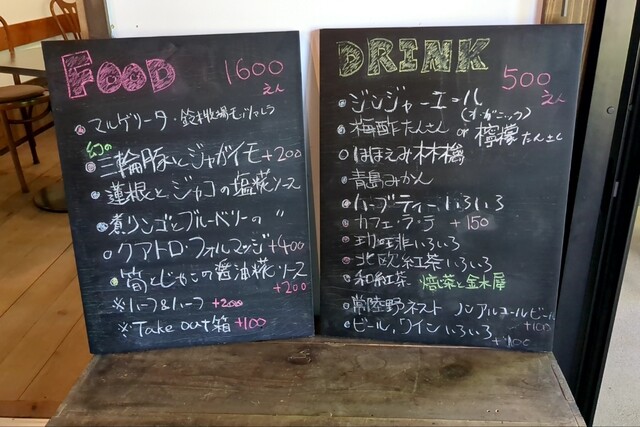 FOOD 1600えん
マルゲリータ・鈴木牧場モッツァレラ
幻の
三輪豚とジャガイモ+200
蓮根とジャコの塩糀ソース
煮リンゴとブルーベリーの 〃
クアトロ・フォルマッジ+400
筍とじゃこの醤油糀ソース
+200
※ハーフ&ハーフ +200
※Take out箱+100
DRINK 500えん
ジンジャーエール
(オーガニック)
梅酢たんさん or 檸檬たんさん
ほほえみ林檎
青島みかん
ハーブティーいろいろ
カフェ・ラ・テ +150
珈琲いろいろ
北欧紅茶いろいろ
和紅茶 焙じ茶と金木犀
常陸野ネスト ノンアルコールビール
+100
ビール、ワインいろいろ
+100